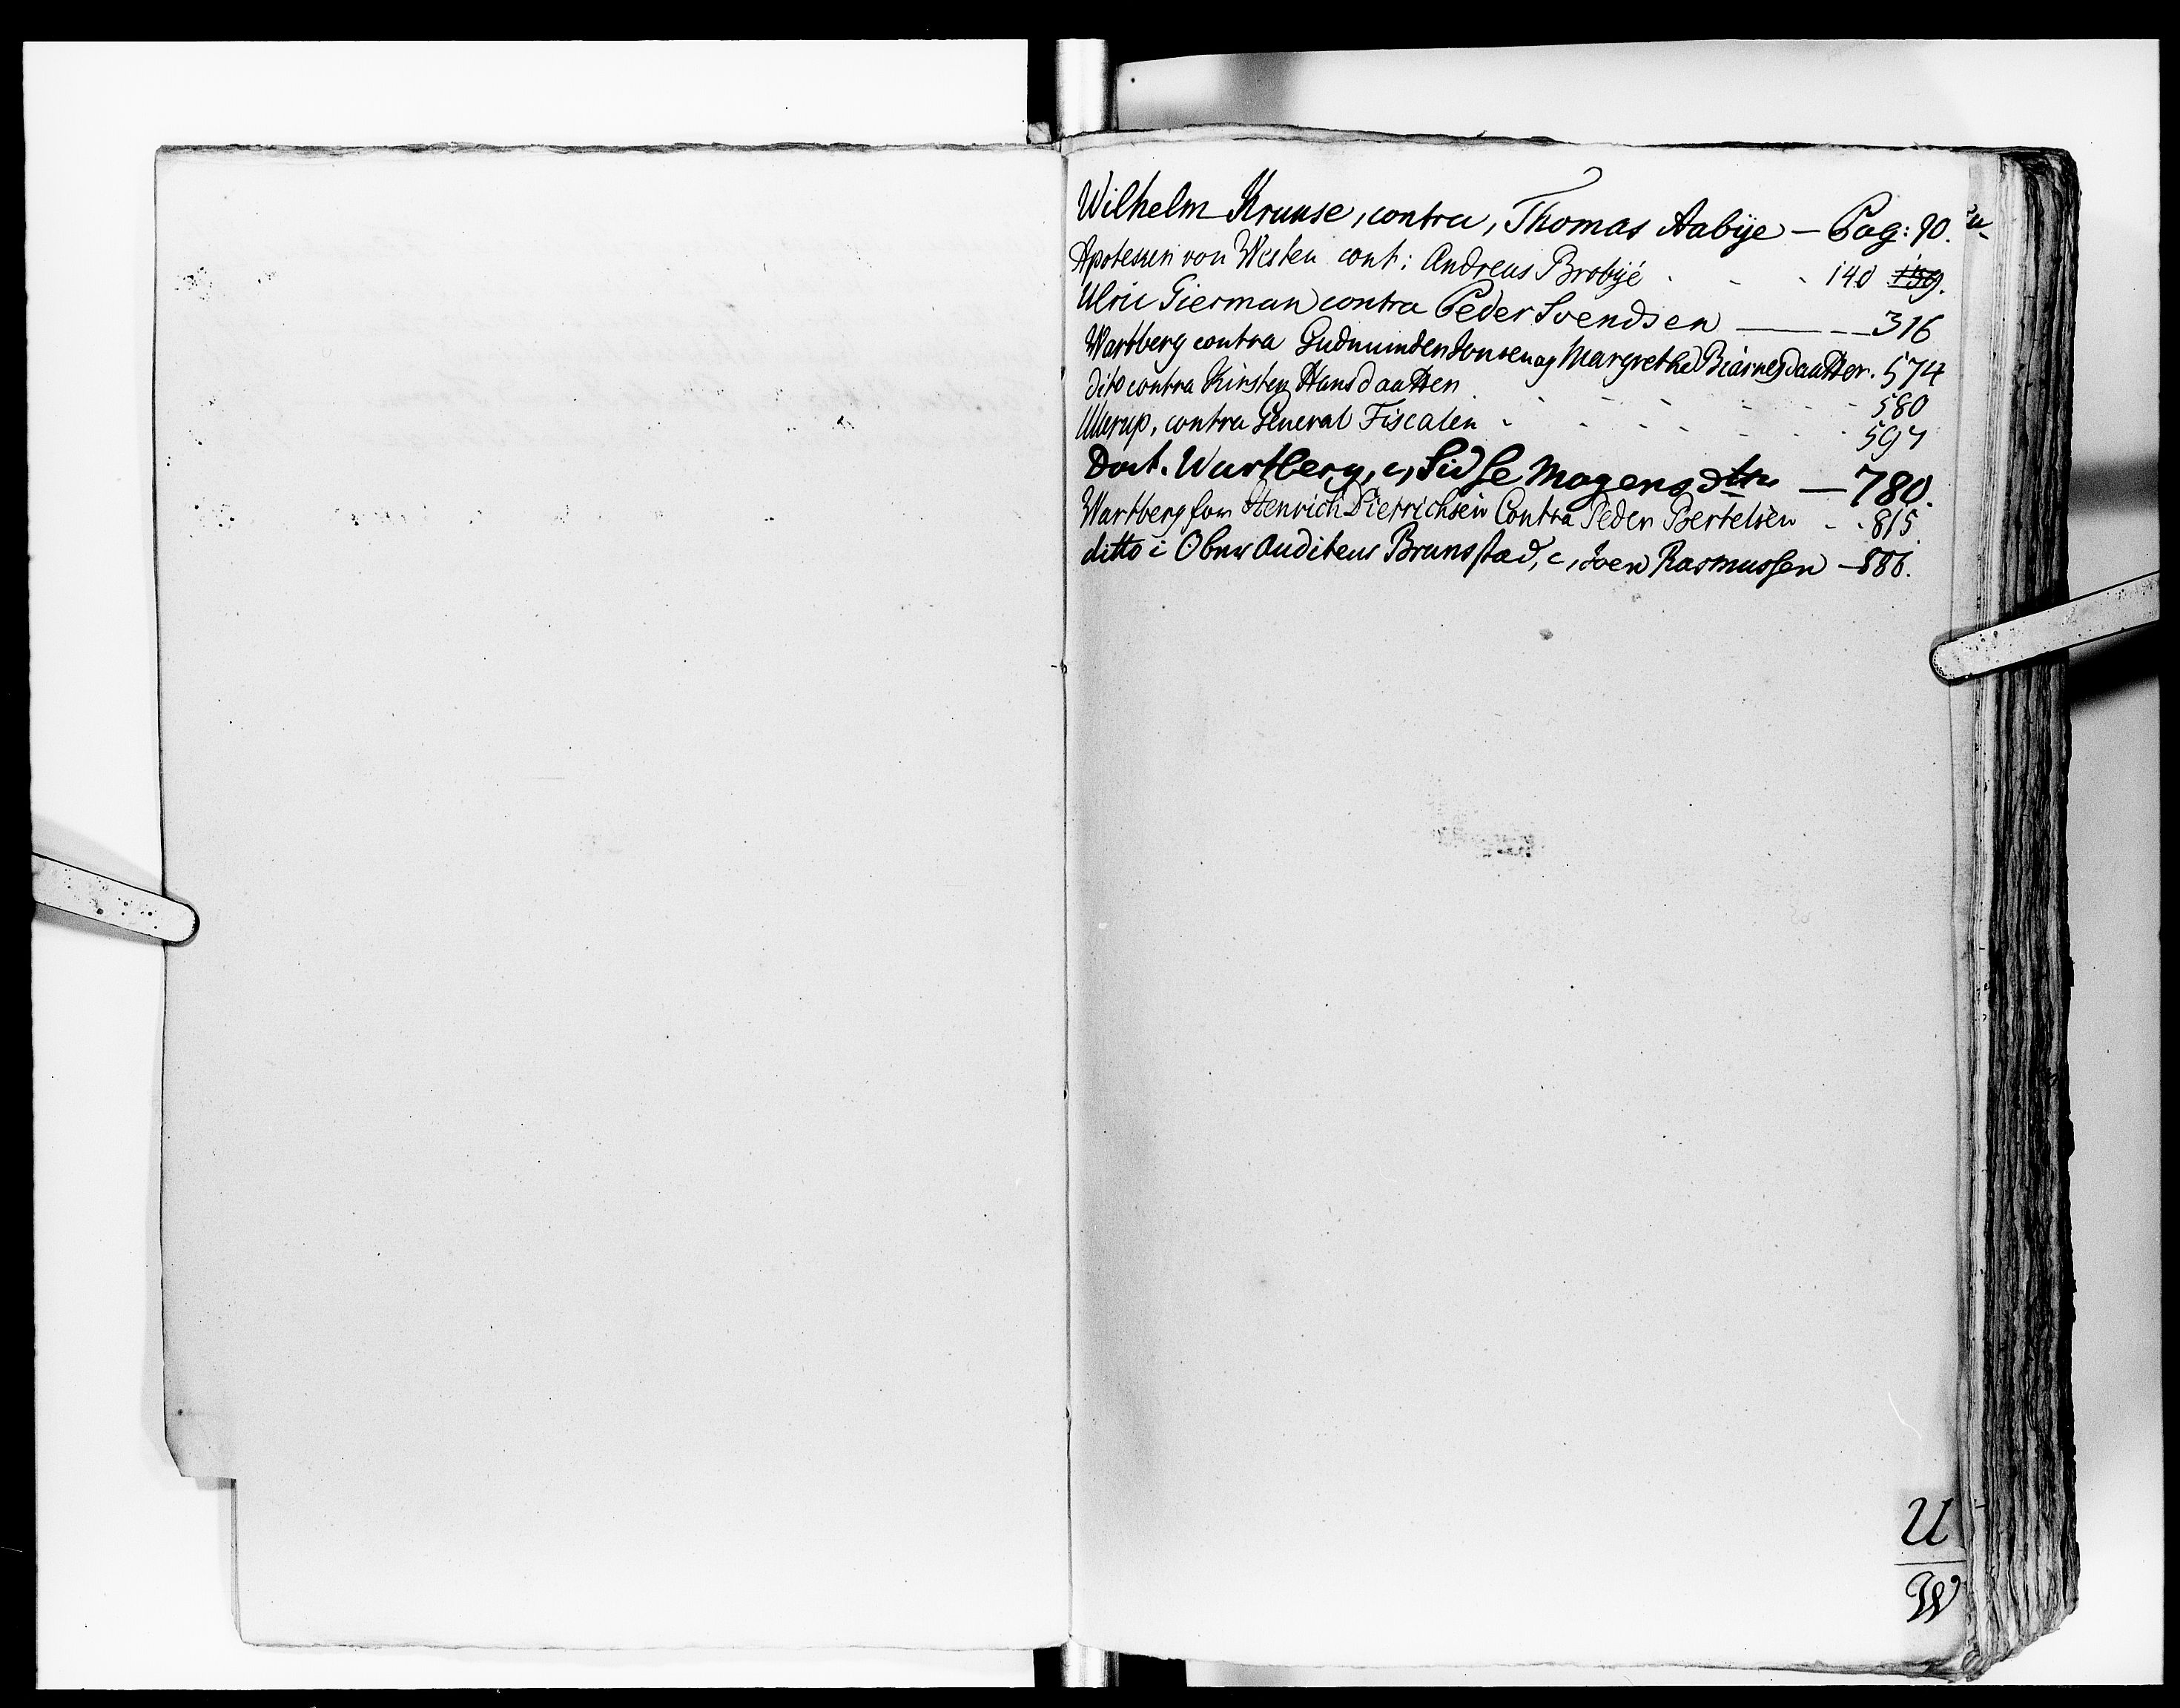 Wilhelm Kruuse, contra, Thomas Aabÿe — Pag: 90.
Apoteken von Westen cont: Andreas Brobÿe - - - 140 159.
Ulric Gierman contra Peder Svendsen — 316
Wartberg contra Gudmunder Jonsen og Margrethe Biarnesdaatter. 574
dito contra Kirsten Hansdaatter - - - 580
Ullerup, contra General Fiscalen - - - 597
Doct. Wartberg, c, Sidse Mogensdtr — 780.
Wartberg for Henrich Dietrichsen Contra Peder Bertelsen - - 815.
ditto i Obr Auditeur Brunstad, c, Iven Rasmussen — 886.
U
W